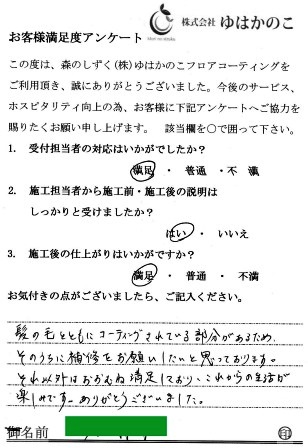 株式会社 ゆはかのこ
お客様満足度アンケート
この度は、森のしずく(株)ゆはかのこフロアコーティングを
ご利用頂き、誠にありがとうございました。今後のサービス、
ホスピタリティ向上の為、お客様に下記アンケートへご協力を
賜りたくお願い申し上げます。 該当欄を○で囲って下さい。
1. 受付担当者の対応はいかがでしたか?
満足 ・ 普通 ・ 不 満
2. 施工担当者から施工前・施工後の説明は
しっかりと受けましたか?
はい ・ いいえ
3. 施工後の仕上がりはいかがですか?
満足 ・ 普通 ・ 不満
お気付きの点がございましたら、ご記入ください。
髪の毛とともにコーティングされている部分があるため、
そのうちに補修をお願いしたいと思っております。
それ以外はおおむね満足しており、これからの生活が
楽しみです。ありがとうございました。
御名前 印